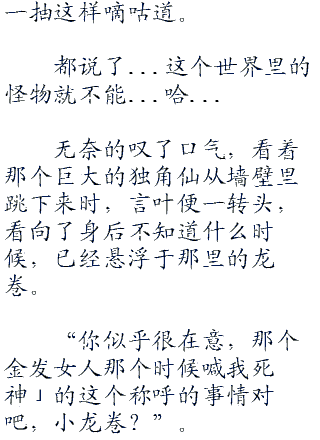 一抽这样嘀咕道。
都说了...这个世界里的
怪物就不能...哈...
无奈的叹了口气，看着
那个巨大的独角仙从墙壁里
跳下来时，言叶便一转头，
看向了身后不知道什么时
候，已经悬浮于那里的龙
卷。
“你似乎很在意，那个
金发女人那个时候喊我死
神」的这个称呼的事情对
吧，小龙卷？”。